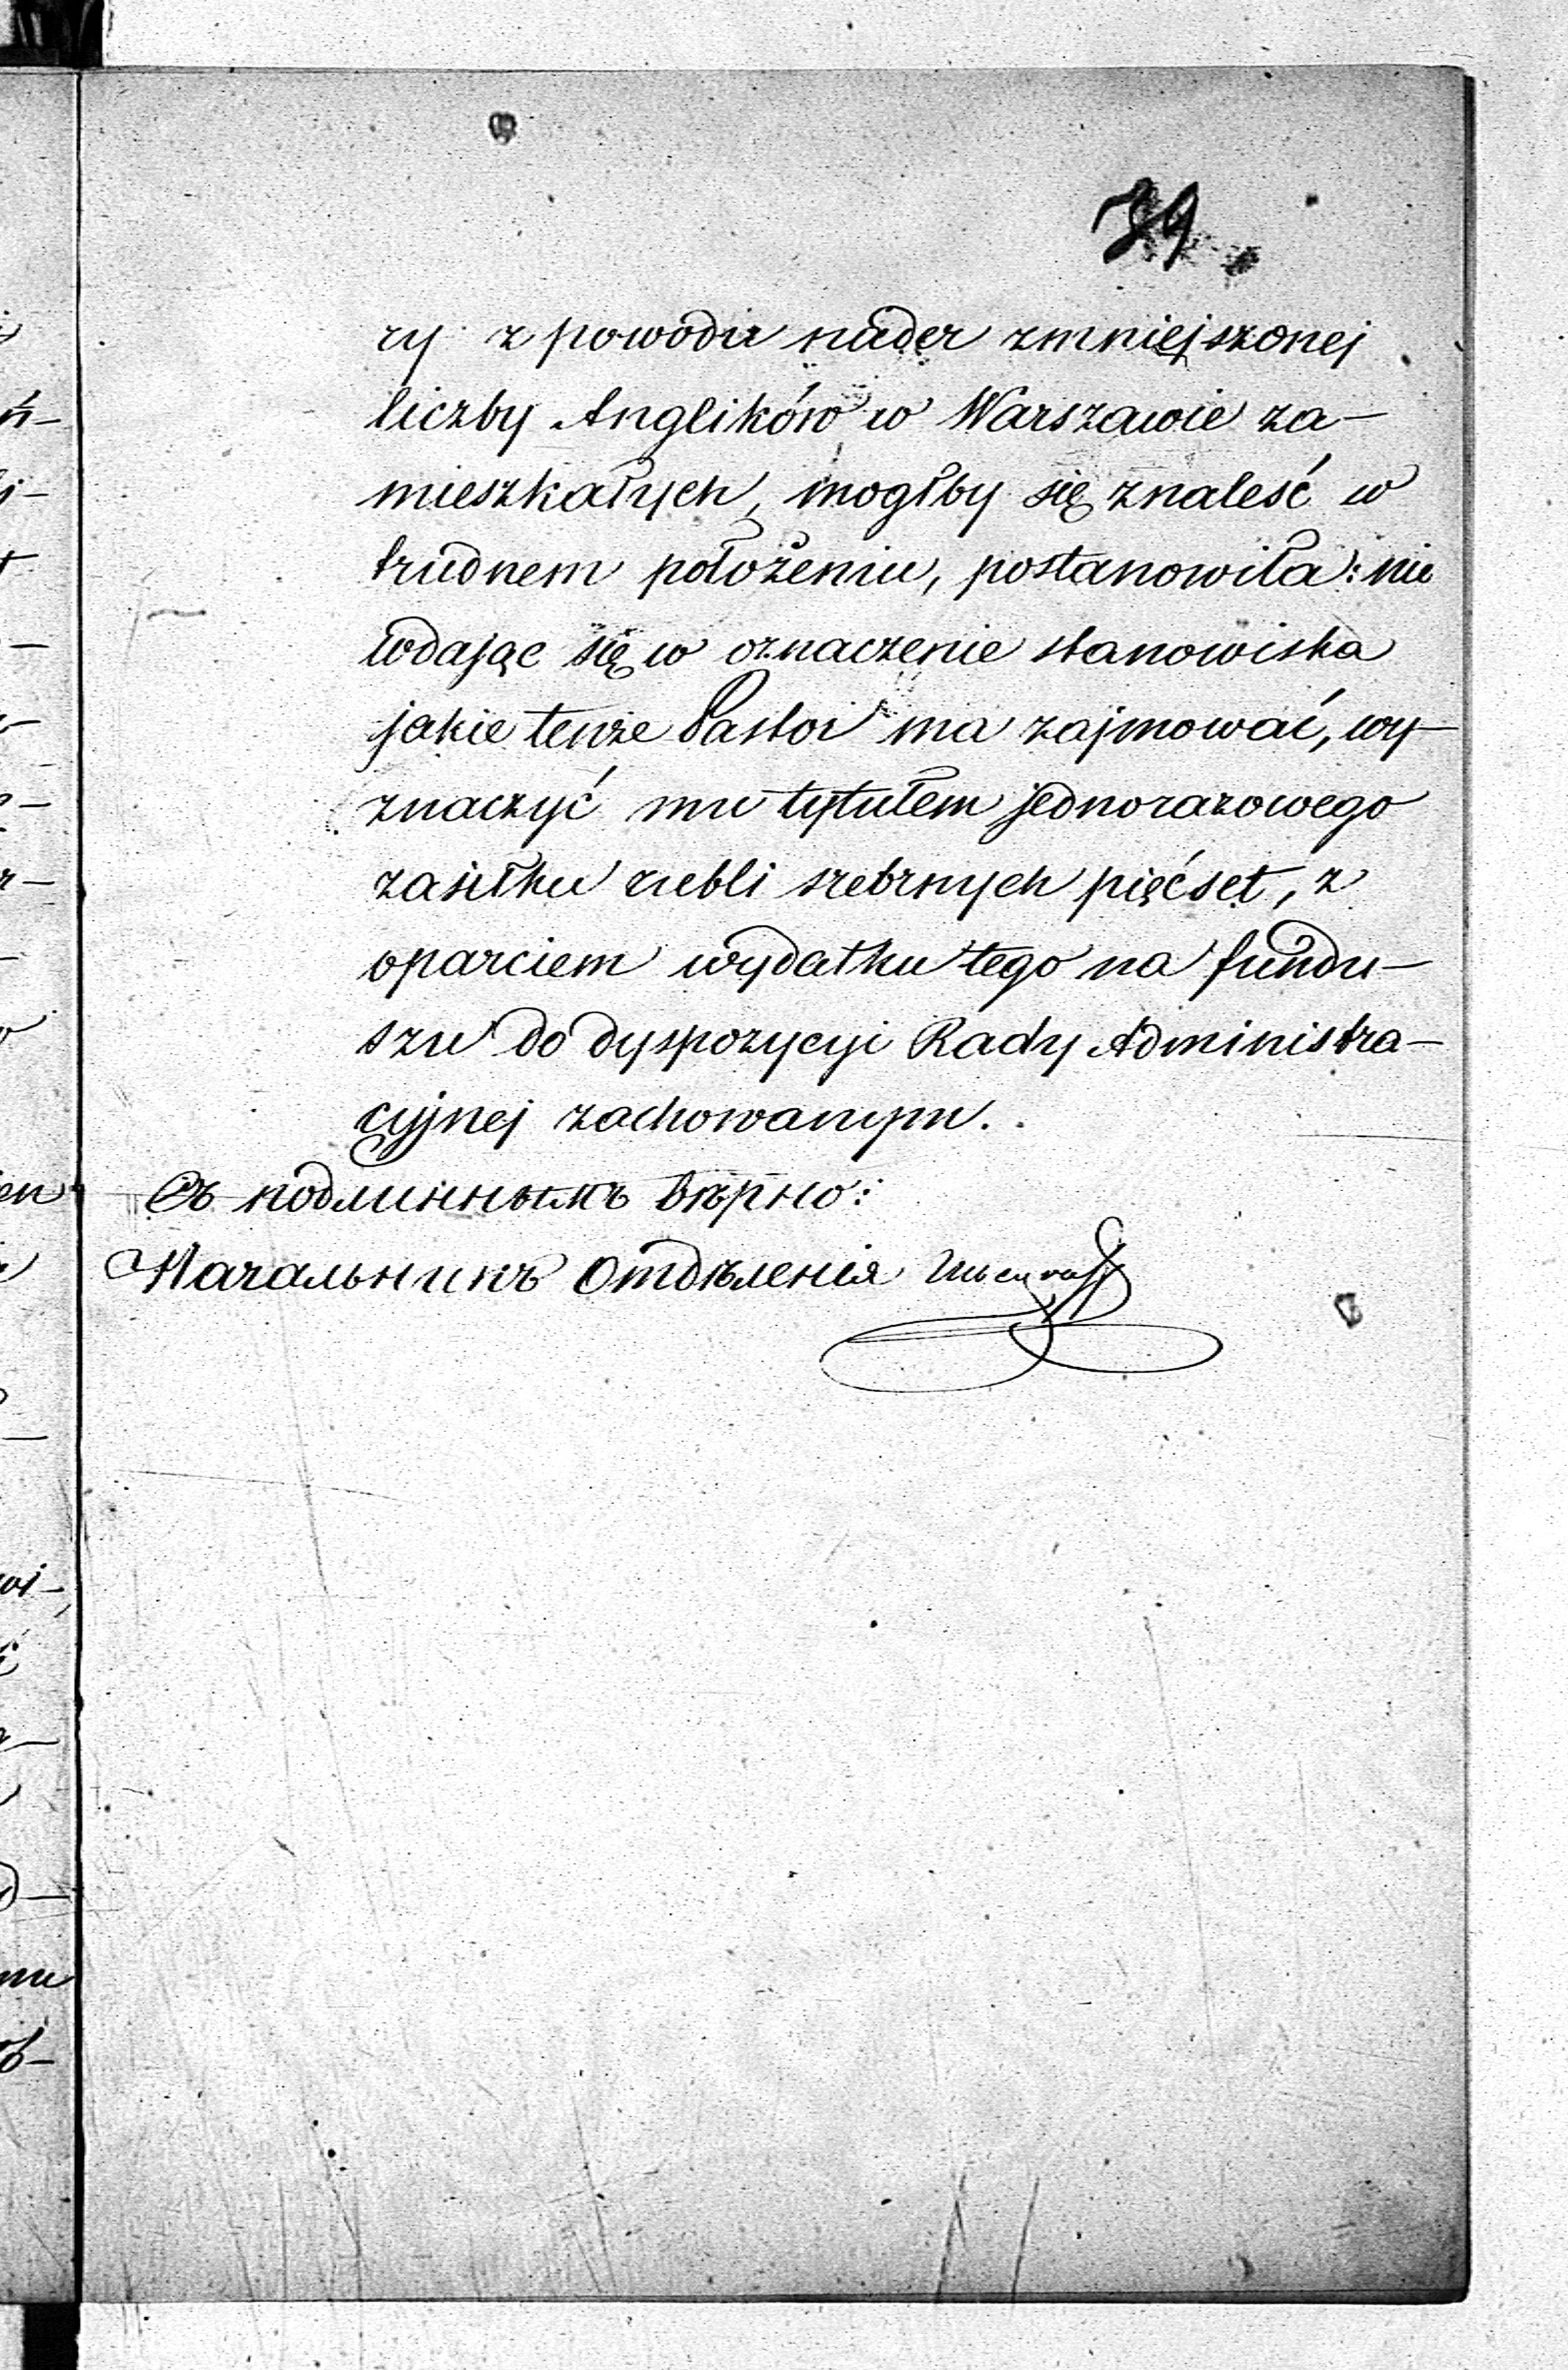 39
ry z powodu nader zmniejszonej
liczby Anglików w Warszawie za-
mieszkałych, mógłby się znaleść w
trudnem położeniu, postanowiła: nie
wdając się w oznaczenie stanowiska
jakie tenże Pastor ma zajmować, wy-
znaczyć mu tytułem jednorazowego
zasiłku rubli srebrnych pięćset, z
oparciem wydatku tego na fundu-
szu do dyspozycyi Rady Administra-
cyjnej zachowanym.
Съ подлиннымъ вѣрно:
Начальникъ Отдѣленія